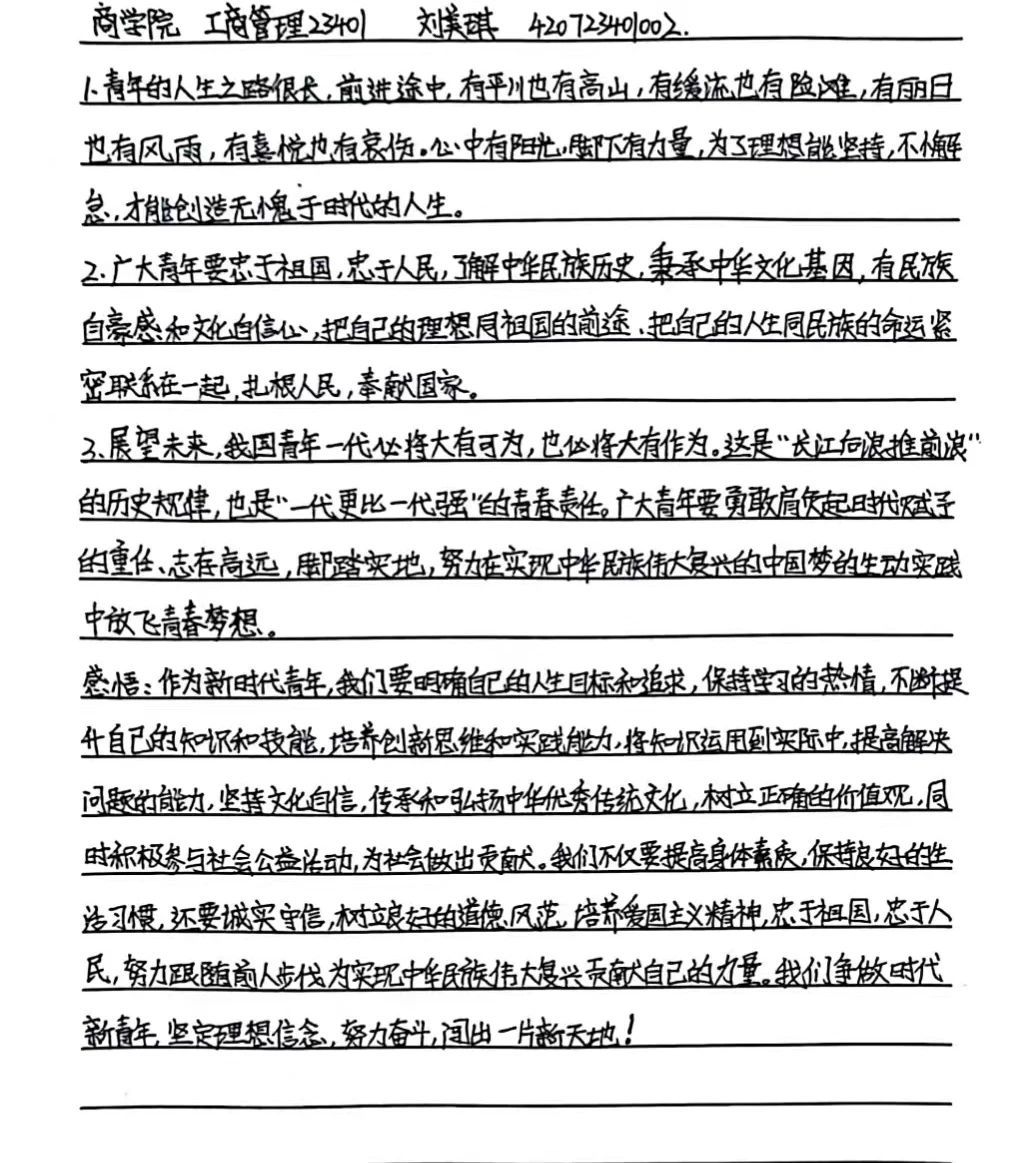 商学院 工商管理23401 刘美琪 420723401002.
1.青年的人生之路很长,前进途中,有平川也有高山,有缓流也有险滩,有丽日
也有风雨,有喜悦也有哀伤。心中有阳光,脚下有力量,为了理想能坚持,不懈
怠,才能创造无愧于时代的人生。
2.广大青年要忠于祖国,忠于人民,了解中华民族历史,秉承中华文化基因,有民族
自豪感和文化自信心,把自己的理想同祖国的前途、把自己的人生同民族的命运紧
密联系在一起,扎根人民,奉献国家。
3.展望未来,我国青年一代必将大有可为,也必将大有作为。这是“长江后浪推前浪”
的历史规律,也是“一代更比一代强”的青春责任。广大青年要勇敢肩负起时代赋予
的重任、志存高远,脚踏实地,努力在实现中华民族伟大复兴的中国梦的生动实践
中放飞青春梦想。
感悟:作为新时代青年,我们要明确自己的人生目标和追求,保持学习的热情,不断提
升自己的知识和技能,培养创新思维和实践能力,将知识运用到实际中,提高解决
问题的能力,坚持文化自信,传承和弘扬中华优秀传统文化,树立正确的价值观,同
时积极参与社会公益活动,为社会做出贡献。我们不仅要提高身体素质,保持良好的生
活习惯,还要诚实守信,树立良好的道德风范,培养爱国主义精神,忠于祖国,忠于人
民,努力跟随前人步伐为实现中华民族伟大复兴贡献自己的力量。我们争做时代
新青年,坚定理想信念,努力奋斗,闯出一片新天地!